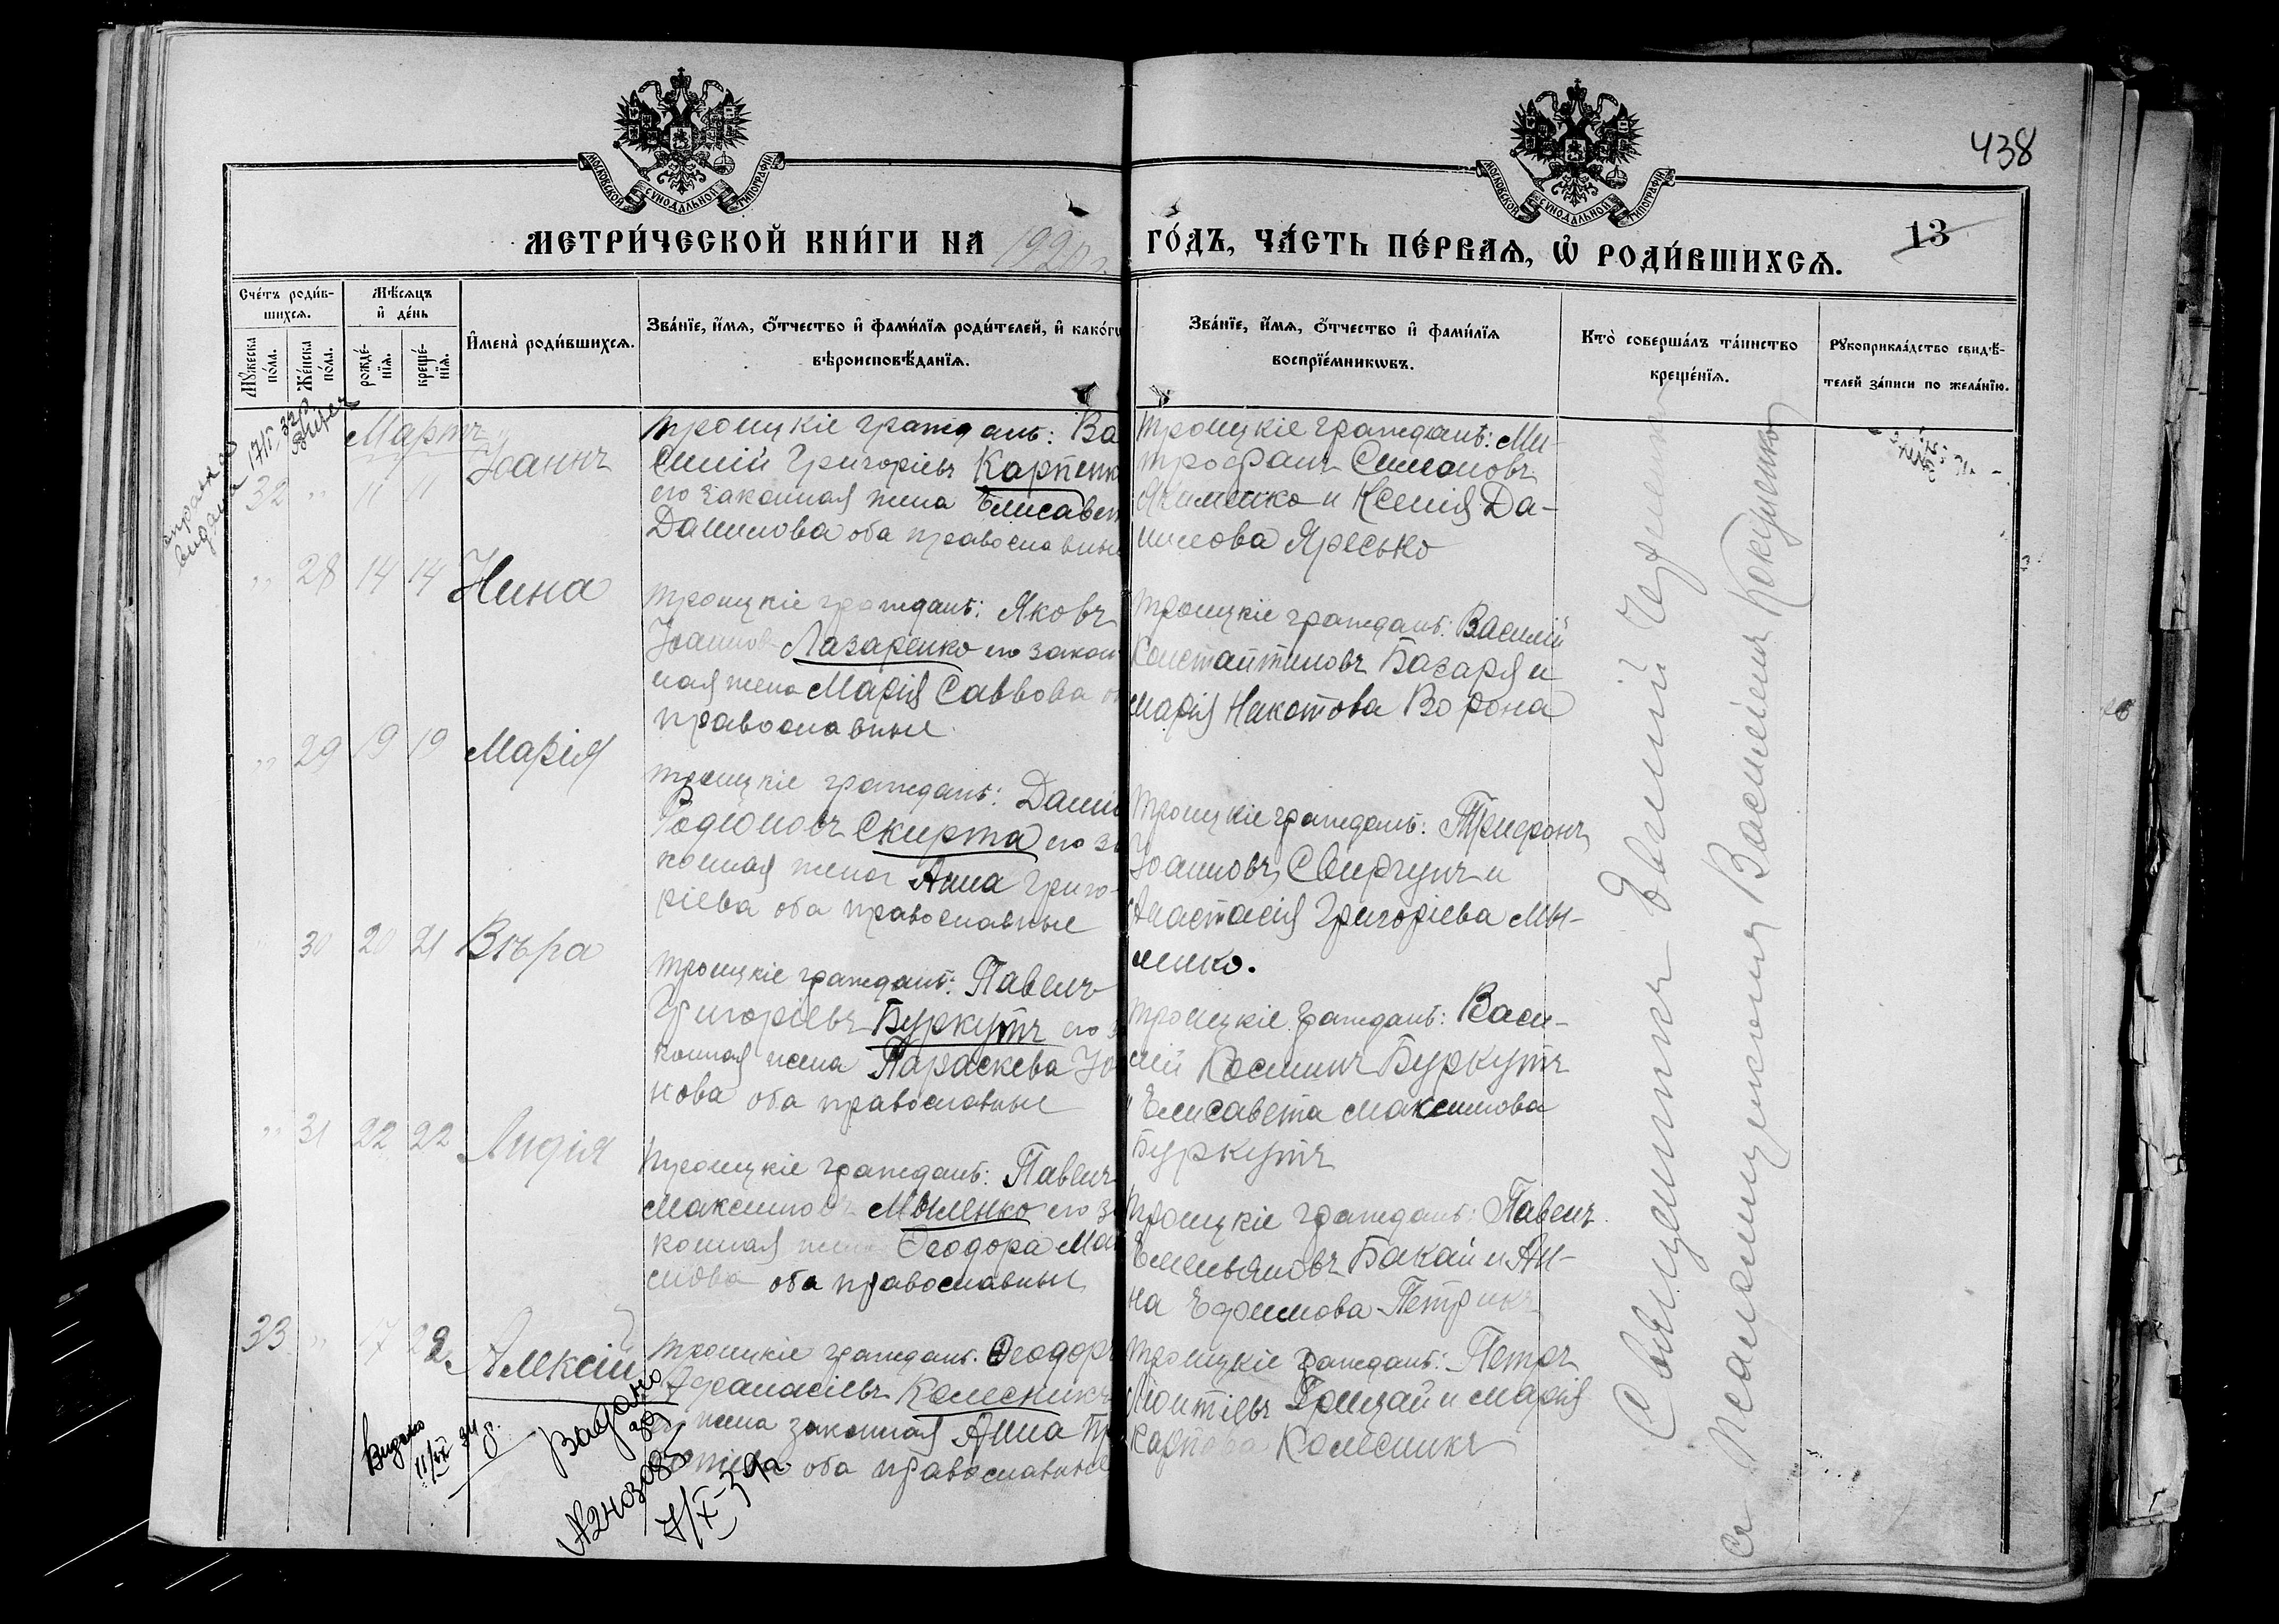 438
МОСКОВСКОЙ СѴНОДАЛЬНОЙ ТИПОГРАФІИ
МОСКОВСКОЙ СѴНОДАЛЬНОЙ ТИПОГРАФІИ
МЕТРИ́ЧЕСКОЙ КНИ́ГИ НА 1920 г.
ГО́ДЪ, ЧА́СТЬ ПЕ́РВАѦ, Ѽ РОДИ́ВШИХСѦ.
13
Сче́тъ роди́в-
шихсѧ.
Мꙋ́жеска по́ла.
Же́нска по́ла.
Мѣ́сѧцъ
и҆ де́нь
рожде́-
нїѧ.
креще́-
нїѧ.
И҆мена̀ роди́вшихсѧ.
Зва́нїе, и҆́мѧ, ѻ҆́тчество и҆ фами́лїѧ роди́телей, и҆ како́гѡ
вѣроисповѣ́данїѧ.
Зва́нїе, и҆́мѧ, ѻ҆́тчество и҆ фами́лїѧ
воспрїе́мникѡвъ.
Кто̀ соверша́лъ та́инство
креще́нїѧ.
Рꙋкоприкла́дство свидѣ́-
телей за́писи по жела́нїю.
Мартъ
32 " 11 11 Іоаннъ
Троицкіе граждане: Ва
силій Григоріевъ Карпенк
его законная жена Елисавет
Данилова оба православные
Троицкіе граждане: Ми-
трофанъ Симоновъ
Якименко и Ксенія Да-
нилова Яресько
" 28 14 14 Нина
Троицкіе граждане: Яковъ
Іоанновъ Лазаренко его закон
ная жена Марія Саввова о
православные.
Троицкіе граждане: Василій
Константиновъ Базаря и
Марія Ворона
" 29 19 19 Марія
Троицкіе граждане: Данiи
Родіоновъ Скирта его за
конная жена Анна Григо-
ріева оба православные
Троицкіе граждане: Трифонъ
Іоанновъ Свиргунъ и
Анастасія Григоріева Мы-
ленко.
" 30 20 21 Вѣра
Троицкіе граждане: Павелъ
Григоріевъ Буркутъ его за
конная жена Параскева Іо
нова оба православные
Троицкіе граждане: Васи-
лій Косминъ Буркутъ
и Елисавета Максимова
Буркутъ
" 31 22 22 Лидія
Троицкіе граждане: Павелъ
Максимовъ Мыленко его за
конная жена Ѳеодора Ма
оба православные
Троицкіе граждане: Павелъ
Емельяновъ Бакай и Ан-
на Ефимова Петрикъ
33 " 17 22 Алексій
Троицкіе граждане: Ѳеодоръ
Афанасіевъ Колесникъ
его жена законная Анна Пр
оба православные
Троицкіе граждане: Петръ
Леонтіевъ Грицай и Марія
Карпова Колесникъ
Священникъ Евгеній
съ Псаломщикомъ Василіемъ
Видано
11/VI 34 р.
7/X-39